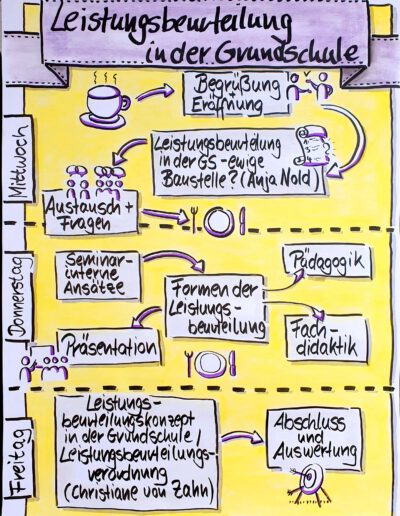 Leistungsbeurteilung
in der Grundschule
Mittwoch
Begrüßung
+
Eröffnung
Leistungsbeurteilung
in der GS - ewige
Baustelle? (Anja Nold)
Austausch +
Fragen
Donnerstag
Seminar-
interne
Ansätze
Formen der
Leistungs-
beurteilung
Pädagogik
Fach-
didaktik
Präsentation
Freitag
Leistungs-
beurteilungskonzept
in der Grundschule /
Leistungsbeurteilungs-
verordnung
(Christiane von Zahn)
Abschluss
und
Auswertung